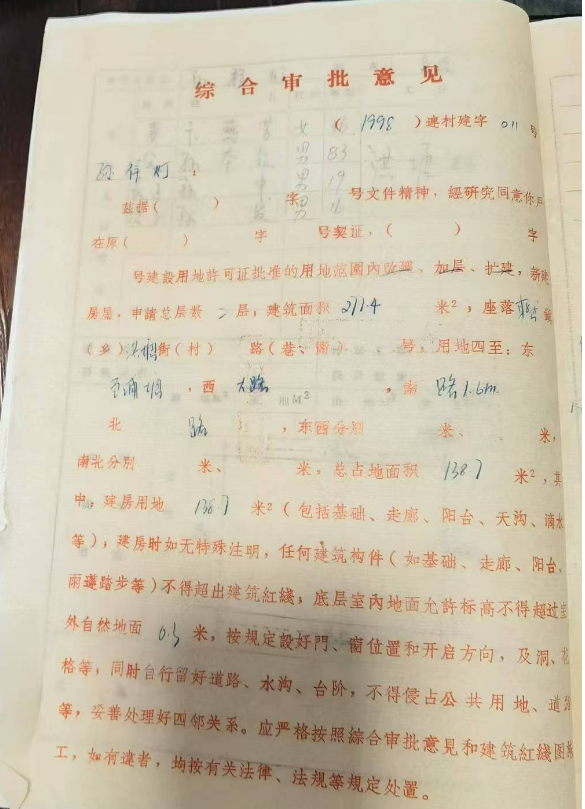 综合审批意见
( 1998 )建村建字 011 号
:
兹据( ) 字 号文件精神,經研究同意你戶
在原( ) 字 号契证,( ) 字
号建設用地許可证批准的用地范圍內改建、加层、扩建,新建
房屋,申請总层数 二 层,建筑面积 211.4 米²,座落 鎮
(乡) 街(村) 路(巷、街) 、 号,用地四至:东
,西 大路 ,南 路1.6m
北 路 ,东西分别 米、 米,
南北分别 米、 米,总占地面积 138.7 米²,其
中,建房用地 138.7 米²(包括基础、走廊、阳台、天沟、滴水
等);建房时如无特殊注明,任何建筑构件(如基础、走廊、阳台、
雨蓬踏步等)不得超出建筑紅綫;底层室內地面允許标高不得超过室
外自然地面 0.3 米,按規定設好門、窗位置和开启方向,及洞、
格等,同时自行留好道路、水沟、台阶,不得侵占公共用地、道路
等,妥善处理好四邻关系。应严格按照綜合审批意見和建筑紅綫图施
工,如有違者,均按有关法律、法規等規定处置。